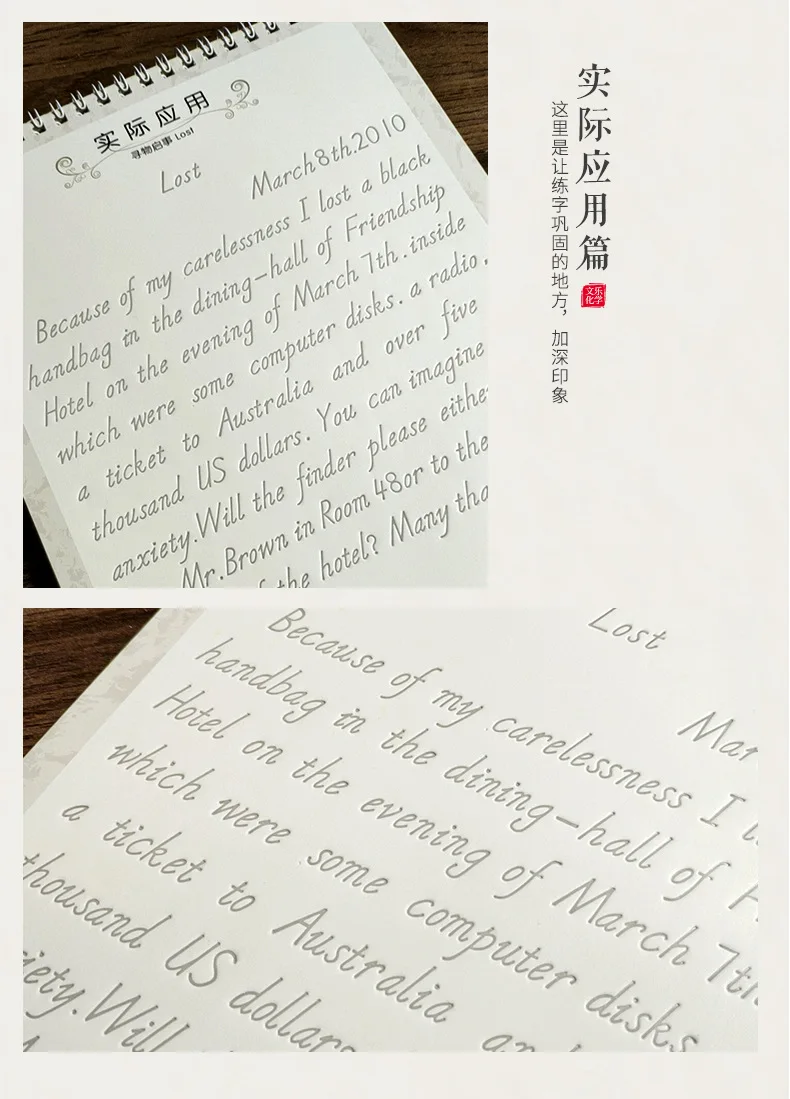 实际应用
寻物启事 Lost
Lost
March8th.2010
Because of my carelessness I lost a black
handbag in the dining-hall of Friendship
Hotel on the evening of March 7th.inside
which were some computer disks. a radio,
a ticket to Australia and over five
thousand US dollars. You can imagine
anxiety.Will the finder please either
Mr.Brown in Room 48or to the
the hotel? Many tha
实际应用篇
这里是让练字巩固的地方，加深印象
乐学文化
Lost
Mar
Because of my carelessness I
handbag in the dining-hall of
Hotel on the evening of March 7th
which were some computer disks
a ticket to Australia
thousand US dollars
iety.Will